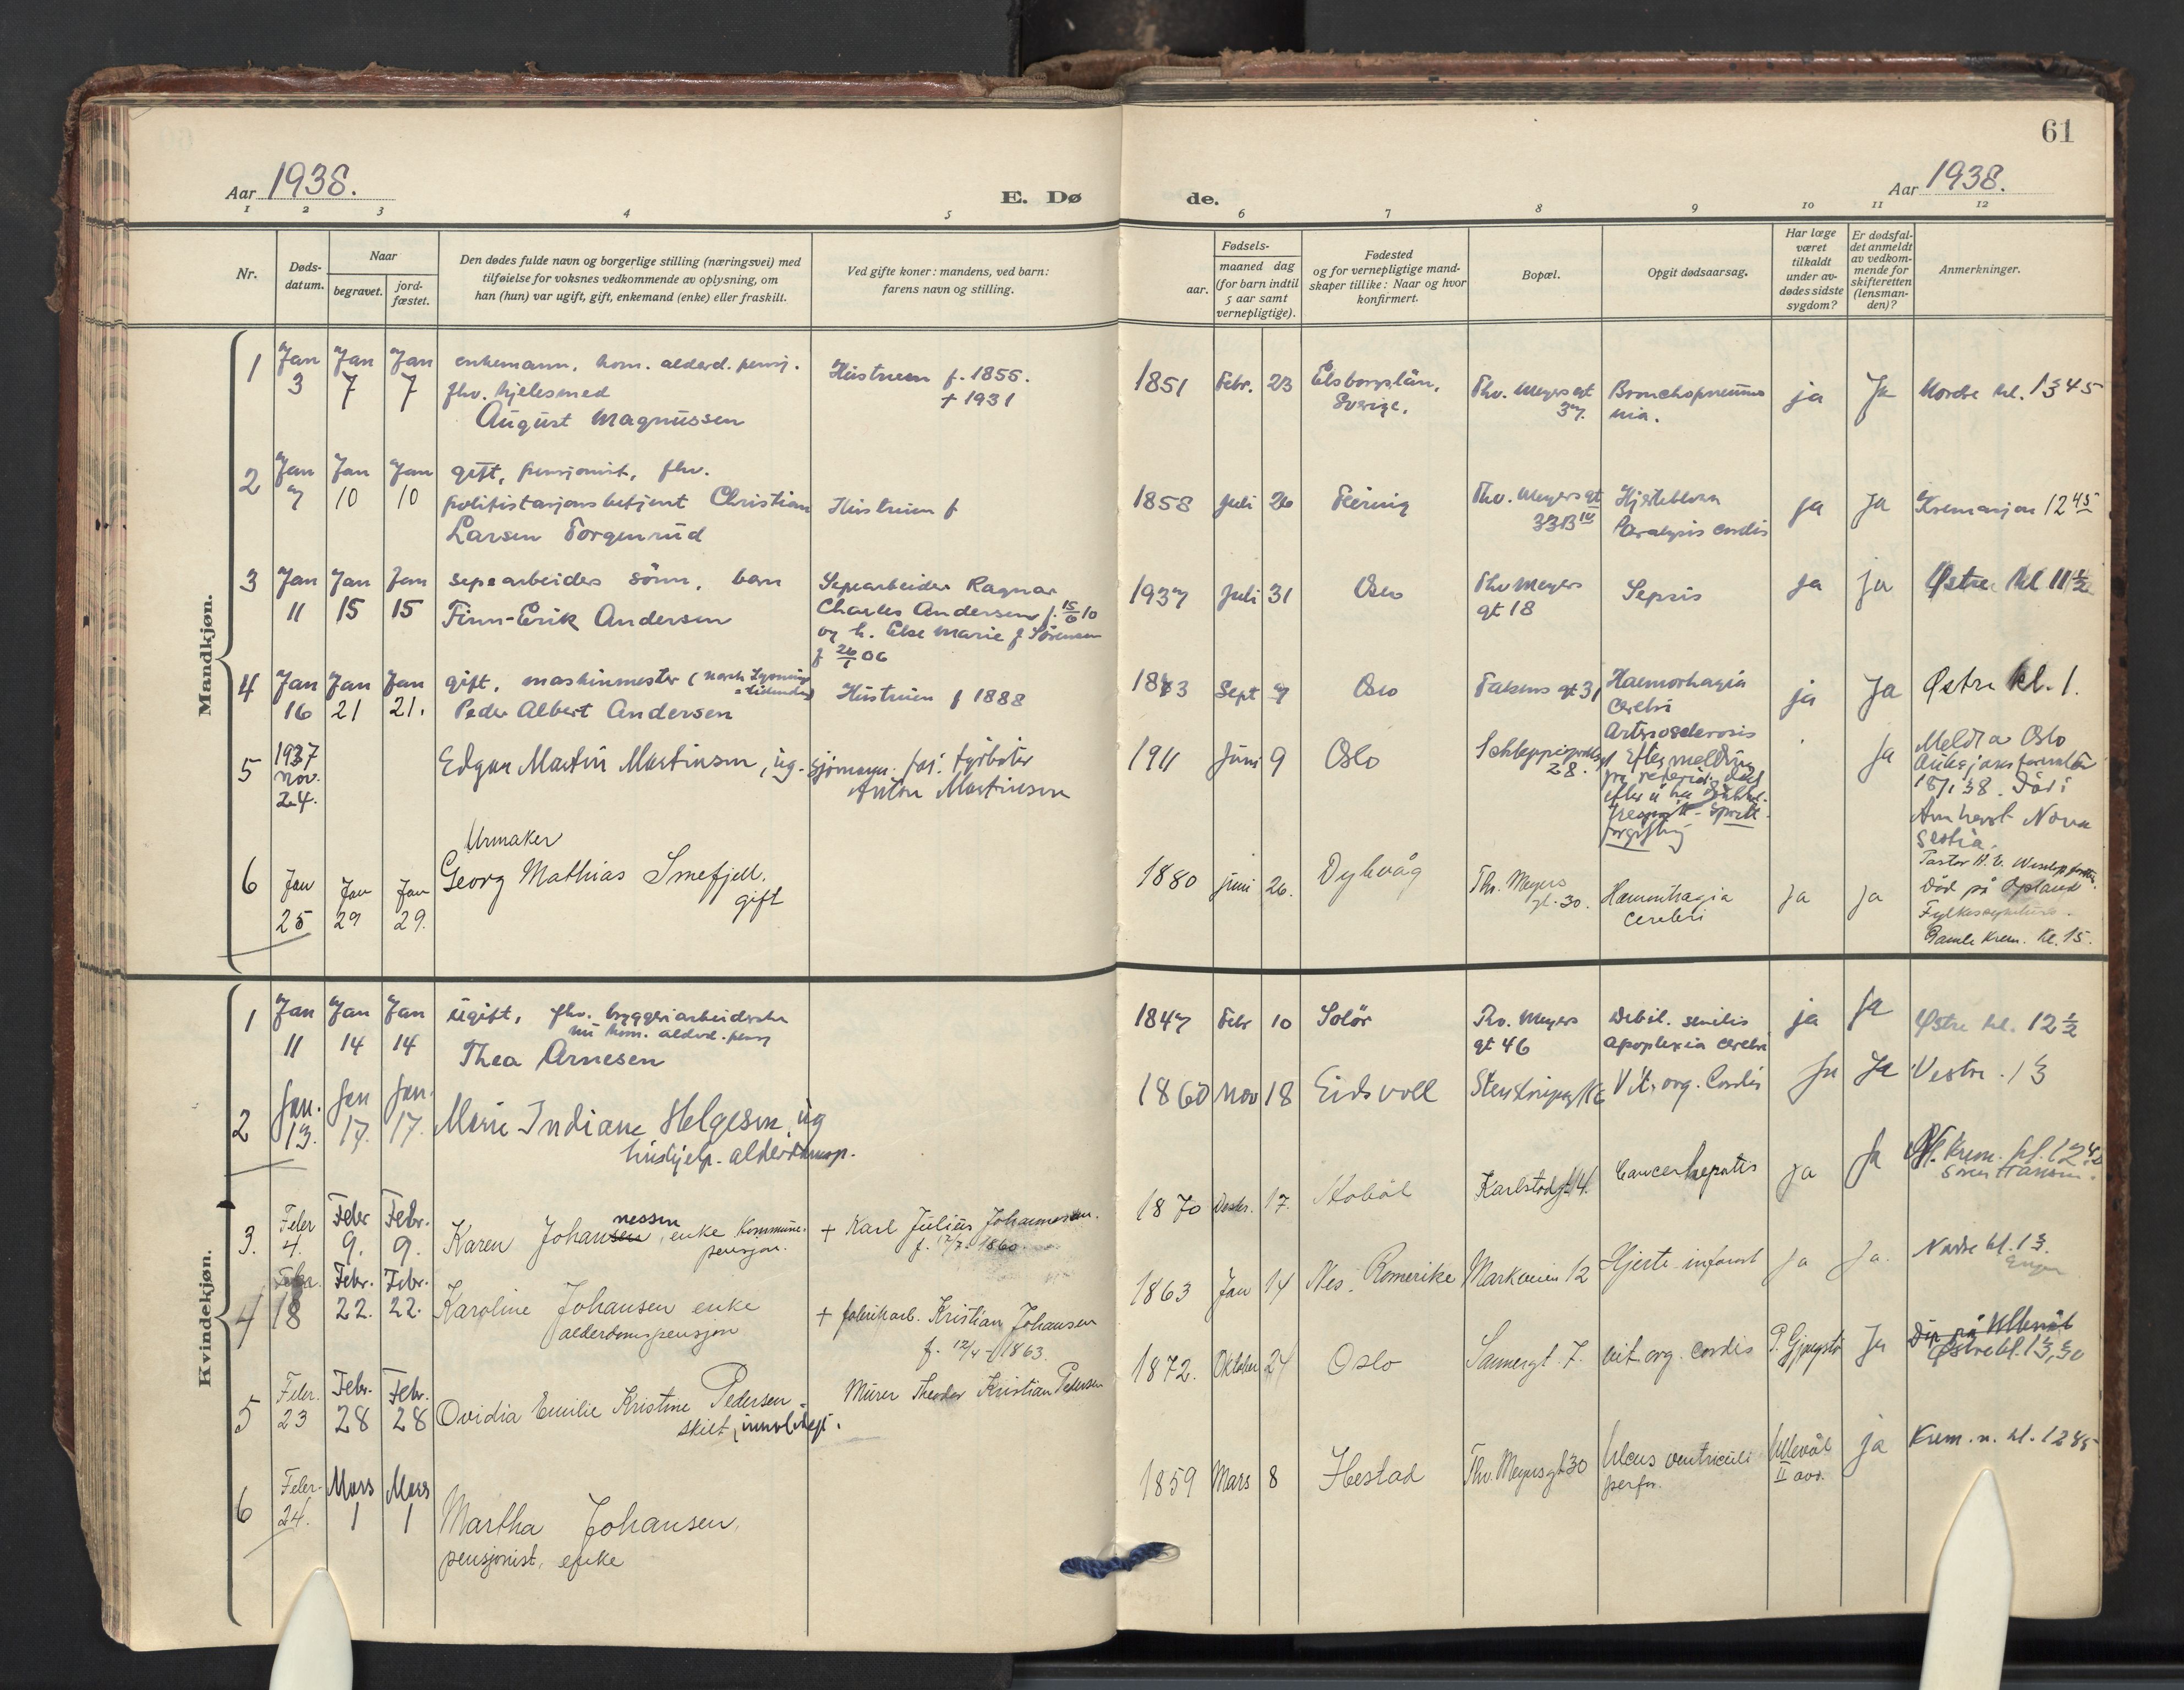 61
Aar 1938.
E. Døde.
Aar 1938.
1 2 3 4 5 6 7 8 9 10 11 12
Nr.
Døds-
datum.
Naar
begravet.
jord-
fæstet.
Den dødes fulde navn og borgerlige stilling (næringsvei) med
tilføielse for voksnes vedkommende av oplysning, om
han (hun) var ugift, gift, enkemand (enke) eller fraskilt.
Ved gifte koner: mandens, ved barn:
farens navn og stilling.
Fødsels-
aar.
maaned dag
(for barn indtil
5 aar samt
vernepligtige).
Fødested
og for vernepligtige mand-
skaper tillike: Naar og hvor
konfirmert.
Bopæl.
Opgit dødsaarsag.
Har læge
været
tilkaldt
under av-
dødes sidste
sygdom?
Er dødsfal-
det anmeldt
av vedkom-
mende for
skifteretten
(lensman-
den)?
Anmerkninger.
Mandkjøn.
1
Jan 3
Jan 7
Jan 7
enkemann, kom. alderd. pensj.
fhv. hjulesmed
August Magnussen
Hustruen f. 1855.
+ 1931
1851 Febr. 23
Elsborgslän,
Sverige.
Thv. Meyers gt
37.
Bronchopneumo
nia.
ja
Ja
Nordre kl. 13 45
2
Jan 7
Jan 10
Jan 10
gift, pensjonist, fhv.
politistasjonsbetjent Christian
Larsen Torgenrud
Hustruen f
1858 Juli 26
Feiring
Thv. Meyers gt
33B IV
Paralysis cordis
ja
Ja
Kremasjon 12 45
3
Jan 11
Jan 15
Jan 15
sepearbeiders sönn, barn
Finn-Erik Andersen
Sepearbeider Ragnar
Charles Andersen f. 15/6 10
og h. Else Marie f Sörensen
f 26/1 06
1937 Juli 31
Oslo
Thv Meyers
gt 18
Sepsis
Ja
Ja
Østre kl 11 1/2
4
Jan 16
Jan 21
Jan 21.
gift, maskinmester (norsk Lysnings
Peder Albert Andersen
Hustruen f 1888
1873 Sept 7
Oslo
Falsens gt 31
Haemorhagia
cerebri
Arteriosclerosis
ja
Ja
Østre kl. 1.
5
1937
Nov.
24.
Edgar Martin Martinsen, ug. sjömann.
far: fyrböter
Anton Martinsen
1911 Juni 9
Oslo
28.
Efter melding
Ja
Meld fra Oslo
18/1 38. Död i
Amherst Nova
Scotia.
6
Jan 25
Jan 29
Jan 29.
Urmaker
Georg Mathias Smefjell.
gift
1880 juni 26.
Dybvåg
Th. Meyers
gt. 30.
Haemorrhagia
cerebri
Ja
Ja
Död på Opland
Fylkessykehus.
Gamle Krem. kl. 15.
Kvindekjøn.
1
Jan 11
Jan 14
Jan 14
ugift, fhv. bryggeriarbeiderske
nu kom. alderd. pensj
Thea Arnesen
1847 Febr 10
Solör
Thv. Meyers
gt 46
Debil. senilis
apoplexia cerebri
ja
Ja
Østre kl. 12 1/2
2
Jan. 13.
Jan 17.
Jan. 17.
Marie Indiane Helgesen, ug
hushjelp.
1860 Nov 18
Eidsvoll
Vit. org. Cordis
Ja
Ja
Vestre. 13
3.
Febr 4.
Febr 9.
Febr. 9.
Karen Johannessen, enke Kommune.
pensjon.
+ Karl Julius Johannessen.
f. 12/7 - 1860
1870 Desbr. 17.
Hobøl
Karlstadgt 4.
Cancer hepatis
Ja
Ja
4
Febr. 18
Febr. 22.
Febr. 22.
Karoline Johansen enke
alderdomspensjon
+ fabrikarb. Kristian Johansen
f. 12/4 - 1863.
1863 Jan 14
Nes. Romerike
Markveien 12
Hjerte infarkt
Ja
Ja.
Nordre kl. 13.
5
Febr. 23
Febr. 28
Febr. 28
Ovidia Emilie Kristine Pedersen
skilt,
Murer Theodor Kristian Pedersen
1872. Oktober 24
Oslo
Sannergt. 7.
vit. org. cordis
Ja
Østre kl. 13,30
6
Febr. 24.
Mars 1
Mars 1
Martha Johansen,
pensjonist, enke
1859 Mars 8
Thv. Meyersgt 30
Ulcus ventriculi
perfor.
Ullevål
II avd.
ja
Krem. n. kl. 12 45